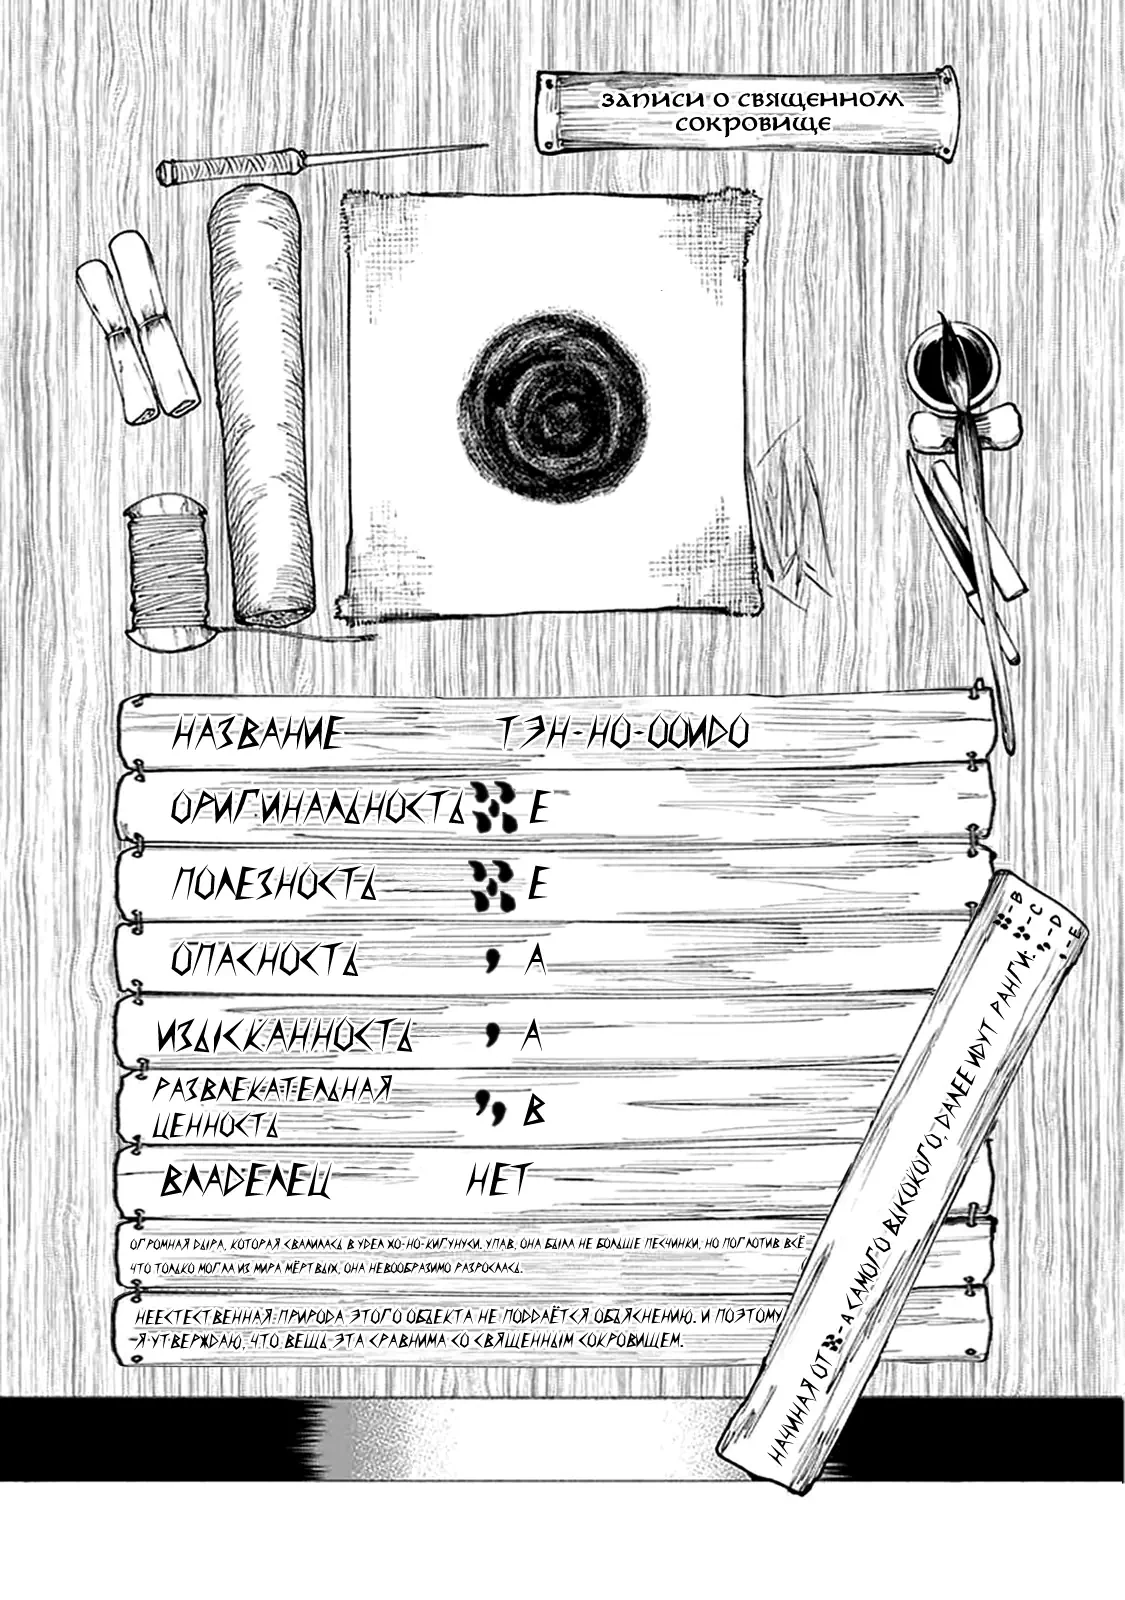 ЗАПИСИ О СВЯЩЕННОМ
СОКРОВИЩЕ
НАЗВАНИЕ ТЭН-НО-ООИДО
ОРИГИНАЛЬНОСТЬ E
ПОЛЕЗНОСТЬ E
ОПАСНОСТЬ A
ИЗЫСКАННОСТЬ A
РАЗВЛЕКАТЕЛЬНАЯ
ЦЕННОСТЬ B
ВЛАДЕЛЕЦ НЕТ
ОГРОМНАЯ ДЫРА, КОТОРАЯ СВАЛИЛАСЬ В УДЕЛ ХО-НО-КИГУНУСИ. УПАВ, ОНА БЫЛА НЕ БОЛЬШЕ ПЕСЧИНКИ, НО ПОГЛОТИВ ВСЁ
ЧТО ТОЛЬКО МОГЛА ИЗ МИРА МЁРТВЫХ, ОНА НЕВООБРАЗИМО РАЗРОСЛАСЬ.
НЕЕСТЕСТВЕННАЯ ПРИРОДА ЭТОГО ОБЪЕКТА НЕ ПОДДАЁТСЯ ОБЪЯСНЕНИЮ. И ПОЭТОМУ
Я УТВЕРЖДАЮ, ЧТО ВЕЩЬ ЭТА СРАВНИМА СО СВЯЩЕННЫМ СОКРОВИЩЕМ.
НАЧИНАЯ ОТ - A САМОГО ВЫСОКОГО, ДАЛЕЕ ИДУТ РАНГИ:
- B
- C
- D
- E